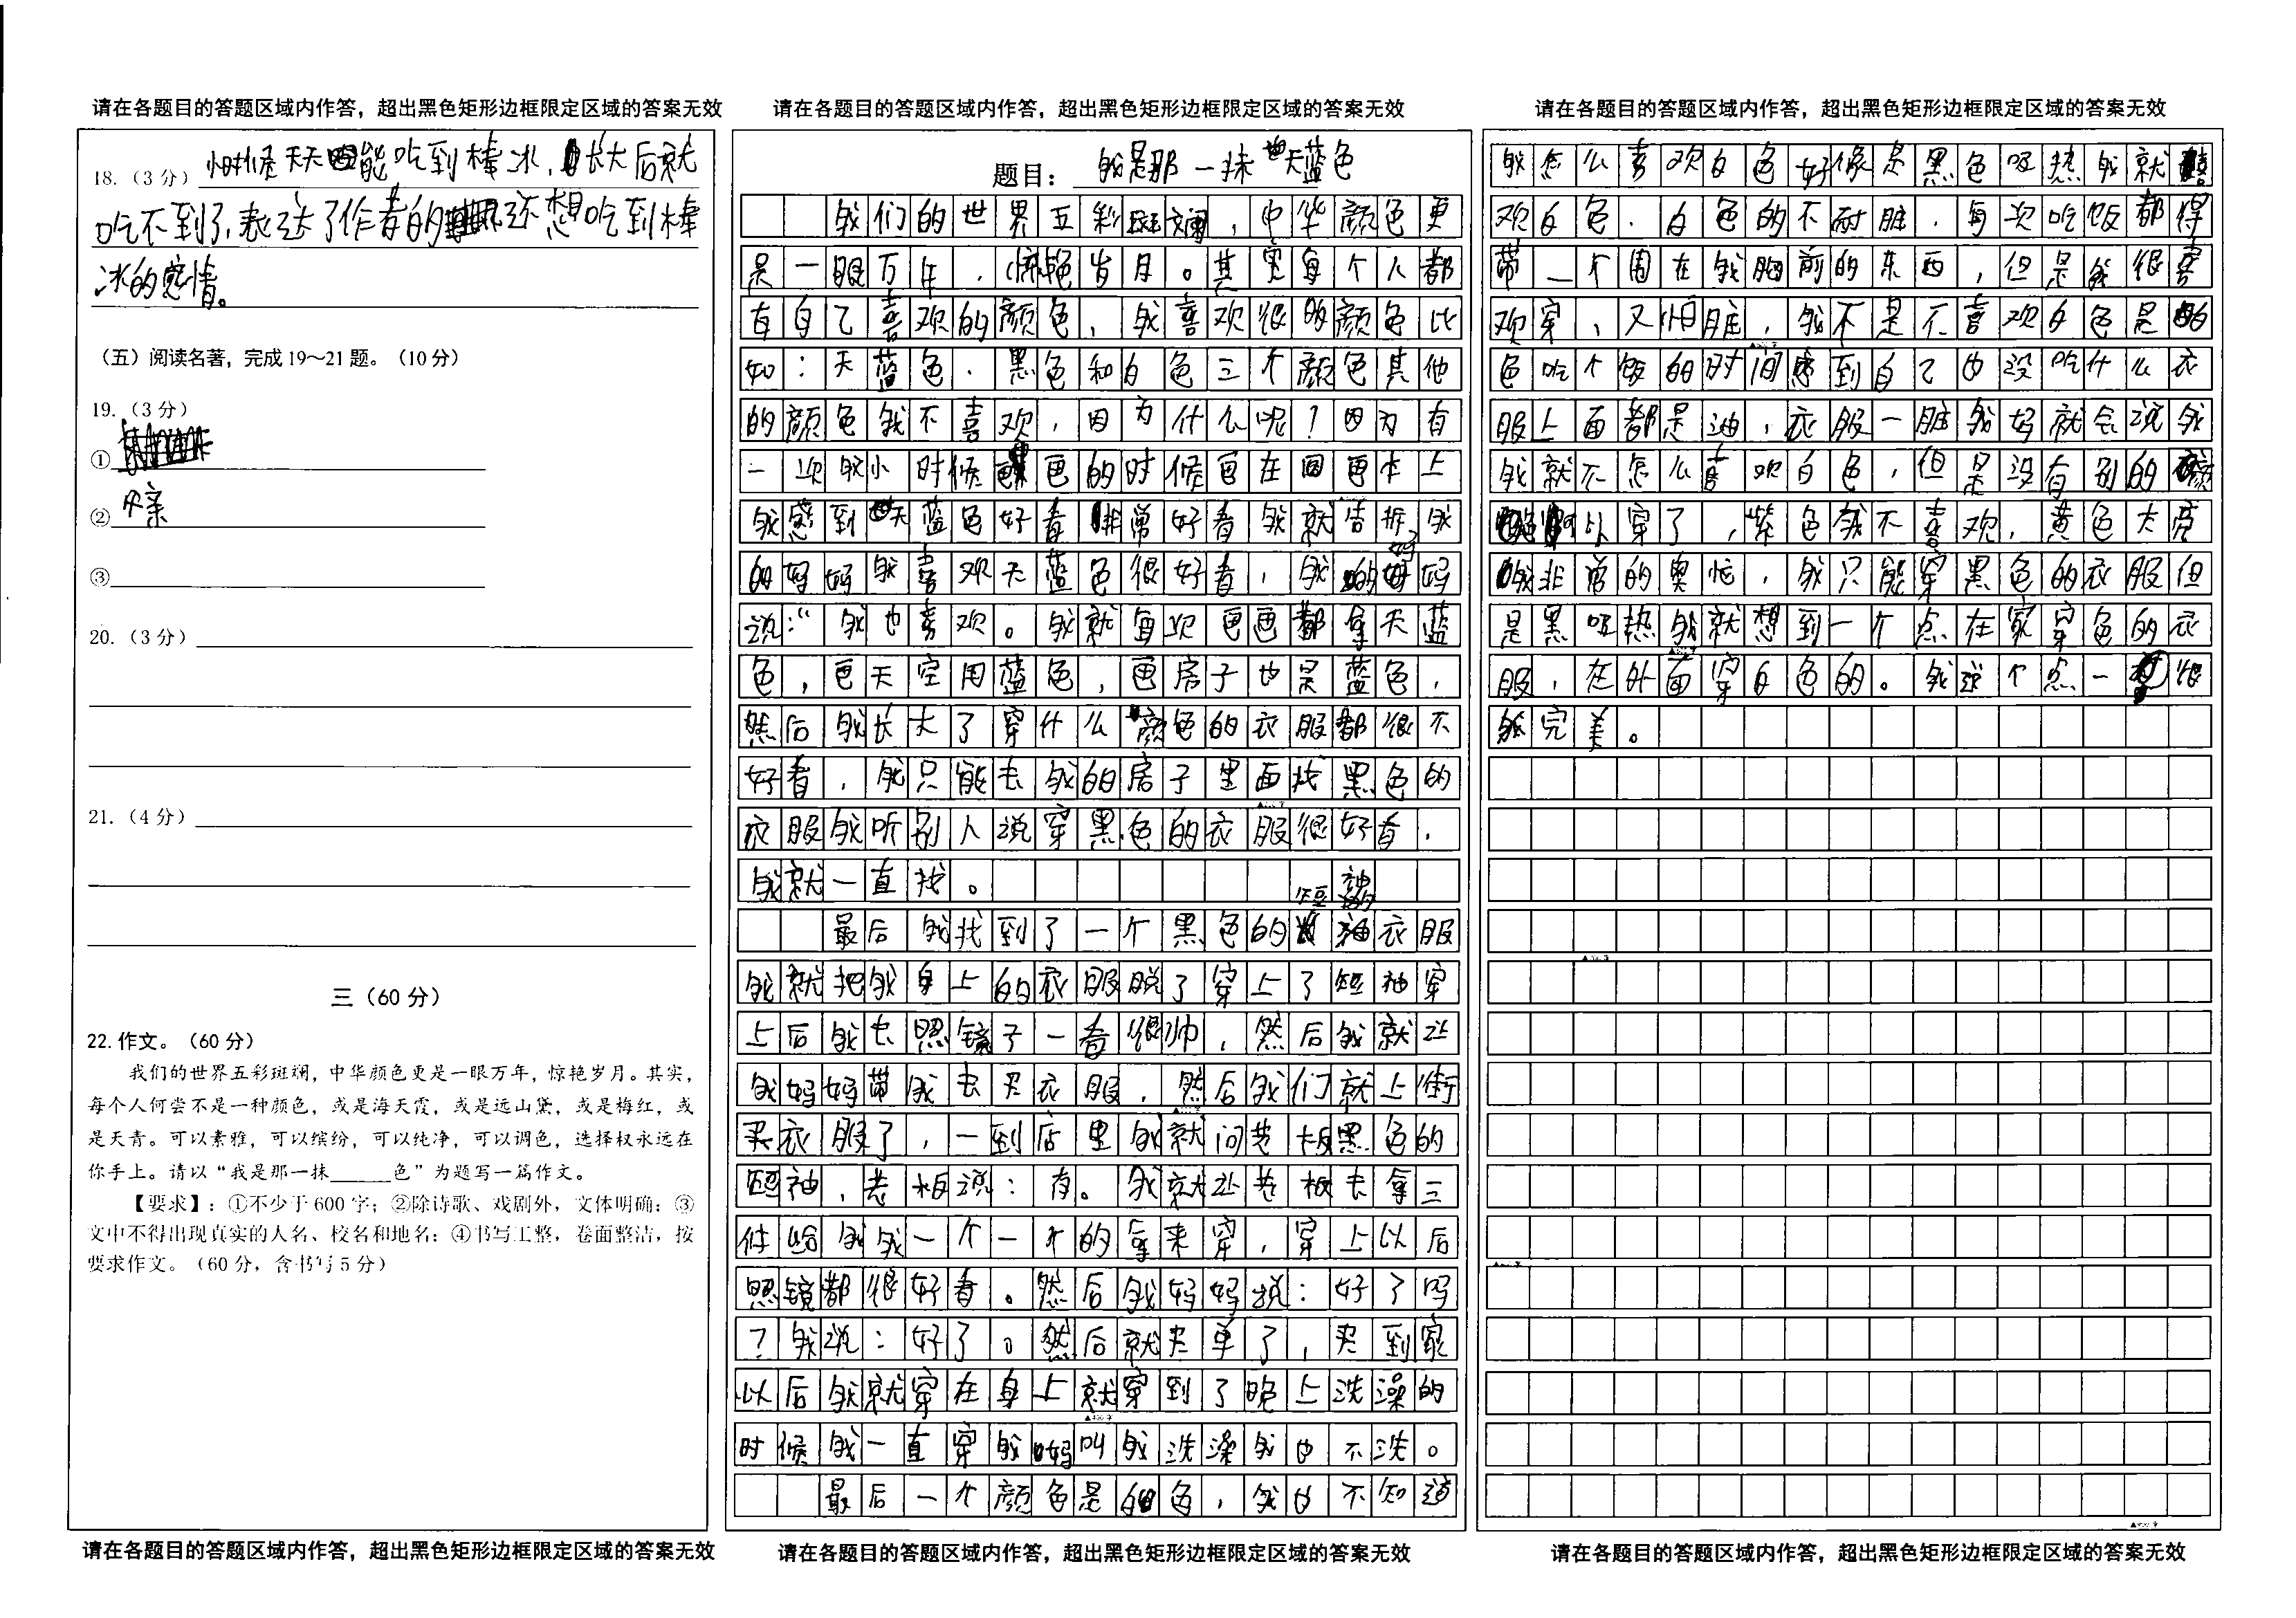 请在各题目的答题区域内作答，超出黑色矩形边框限定区域的答案无效
18.（3分）小时候天天能吃到棒冰，长大后就
吃不到了，表达了作者的还想吃到棒
冰的感情。
（五）阅读名著，完成19～21题。（10分）
19.（3分）
①
②母亲
③
20.（3分）
21.（4分）
三（60分）
22.作文。（60分）
我们的世界五彩斑斓，中华颜色更是一眼万年，惊艳岁月。其实，
每个人何尝不是一种颜色，或是海天霞，或是远山黛，或是梅红，或
是天青。可以素雅，可以缤纷，可以纯净，可以调色，选择权永远在
你手上。请以“我是那一抹______色”为题写一篇作文。
【要求】：①不少于600字；②除诗歌、戏剧外，文体明确；③
文中不得出现真实的人名、校名和地名；④书写工整，卷面整洁，按
要求作文。（60分，含书写5分）
请在各题目的答题区域内作答，超出黑色矩形边框限定区域的答案无效
请在各题目的答题区域内作答，超出黑色矩形边框限定区域的答案无效
题目：我是那一抹天蓝色
我们的世界五彩斑斓，中华颜色更
是一眼万年，惊艳岁月。其实每个人都
有自己喜欢的颜色，我喜欢很的颜色比
如：天蓝色、黑色和白色三个颜色其他
的颜色我不喜欢，因为什么呢！因为有
一次我小时候画的时候画在画本上
我感到天蓝色好看非常好看我就告诉我
的妈妈我喜欢天蓝色很好看，我的妈妈
说：“我也喜欢。我就每次画画都拿天蓝
色，画天空用蓝色，画房子也是蓝色，
然后我长大了穿什么颜色的衣服都很不
好看，我只能去我的房子里面找黑色的
衣服我听别人说穿黑色的衣服很好看，
我就一直找。
最后我找到了一个黑色的短袖衣服
我就把我身上的衣服脱了穿上了短袖穿
上后我去照镜子一看很帅，然后我就让
我妈妈带我去买衣服，然后我们就上街
买衣服了，一到店里我就问老板黑色的
短袖，老板说：有。我就让老板去拿三
件给我我一个一个的拿来穿，穿上以后
照镜都很好看。然后我妈妈说：好了吗
？我说：好了。然后就买单了，买到家
以后我就穿在身上就穿到了晚上洗澡的
时候我一直穿我妈叫我洗澡我也不洗。
最后一个颜色是白色，我也不知道
请在各题目的答题区域内作答，超出黑色矩形边框限定区域的答案无效
请在各题目的答题区域内作答，超出黑色矩形边框限定区域的答案无效
我怎么喜欢白色好像是黑色吸热我就喜
欢白色．白色的不耐脏．每次吃饭都得
带一个围在我胸前的东西，但是我很喜
欢穿，又怕脏，我不是不喜欢白色是白
色吃个饭的时间感到自己也没吃什么衣
服上面都是油，衣服一脏我妈就会说我
我就不怎么喜欢白色，但是没有别的颜
色可以穿了，紫色我不喜欢，黄色太亮
我非常的奥恼，我只能穿黑色的衣服但
是黑吸热我就想到一个点在家穿色的衣
服，在外面穿白色的。我这个点一很
我完美。
请在各题目的答题区域内作答，超出黑色矩形边框限定区域的答案无效